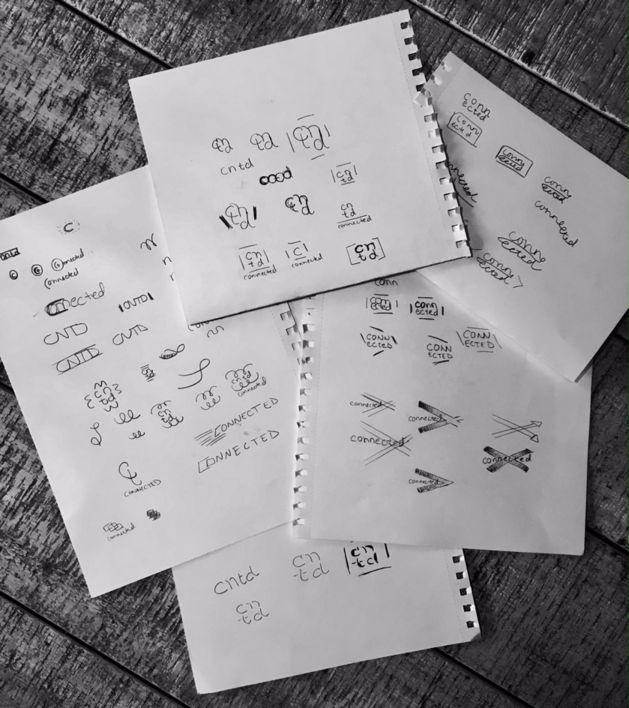 cntd
good
cn
td
cn
td
connected
cn
td
connected
C
connected
cn
td
CONN
ECTED
CONN
ECTED
CONN
ECTED
CONN
ECTED
connected
CONN
ECTED
CONN
ECTED
C
connected
connected
connected
CNTD
CNTD
CNTD
CNTD
connected
CONNECTED
CONNECTED
CONNECTED
connected
CONN
CONN
ECTED
CONN
ECTED
CONN
ECTED
CONN
ECTED
CONN
ECTED
connected
connected
connected
connected
connected
cntd
cn
-td
cn
-td
cn
-td